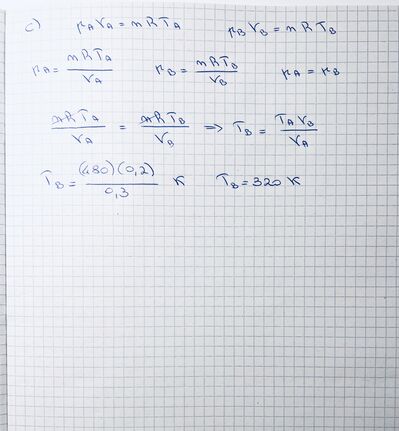 c) pA VA = nRTA pB VB = nRTB
pA = nRTA / VA pB = nRTB / VB pA = pB
nRTA / VA = nRTB / VB => TB = TA VB / VA
TB = (480)(0,2) / 0,3 K TB = 320 K